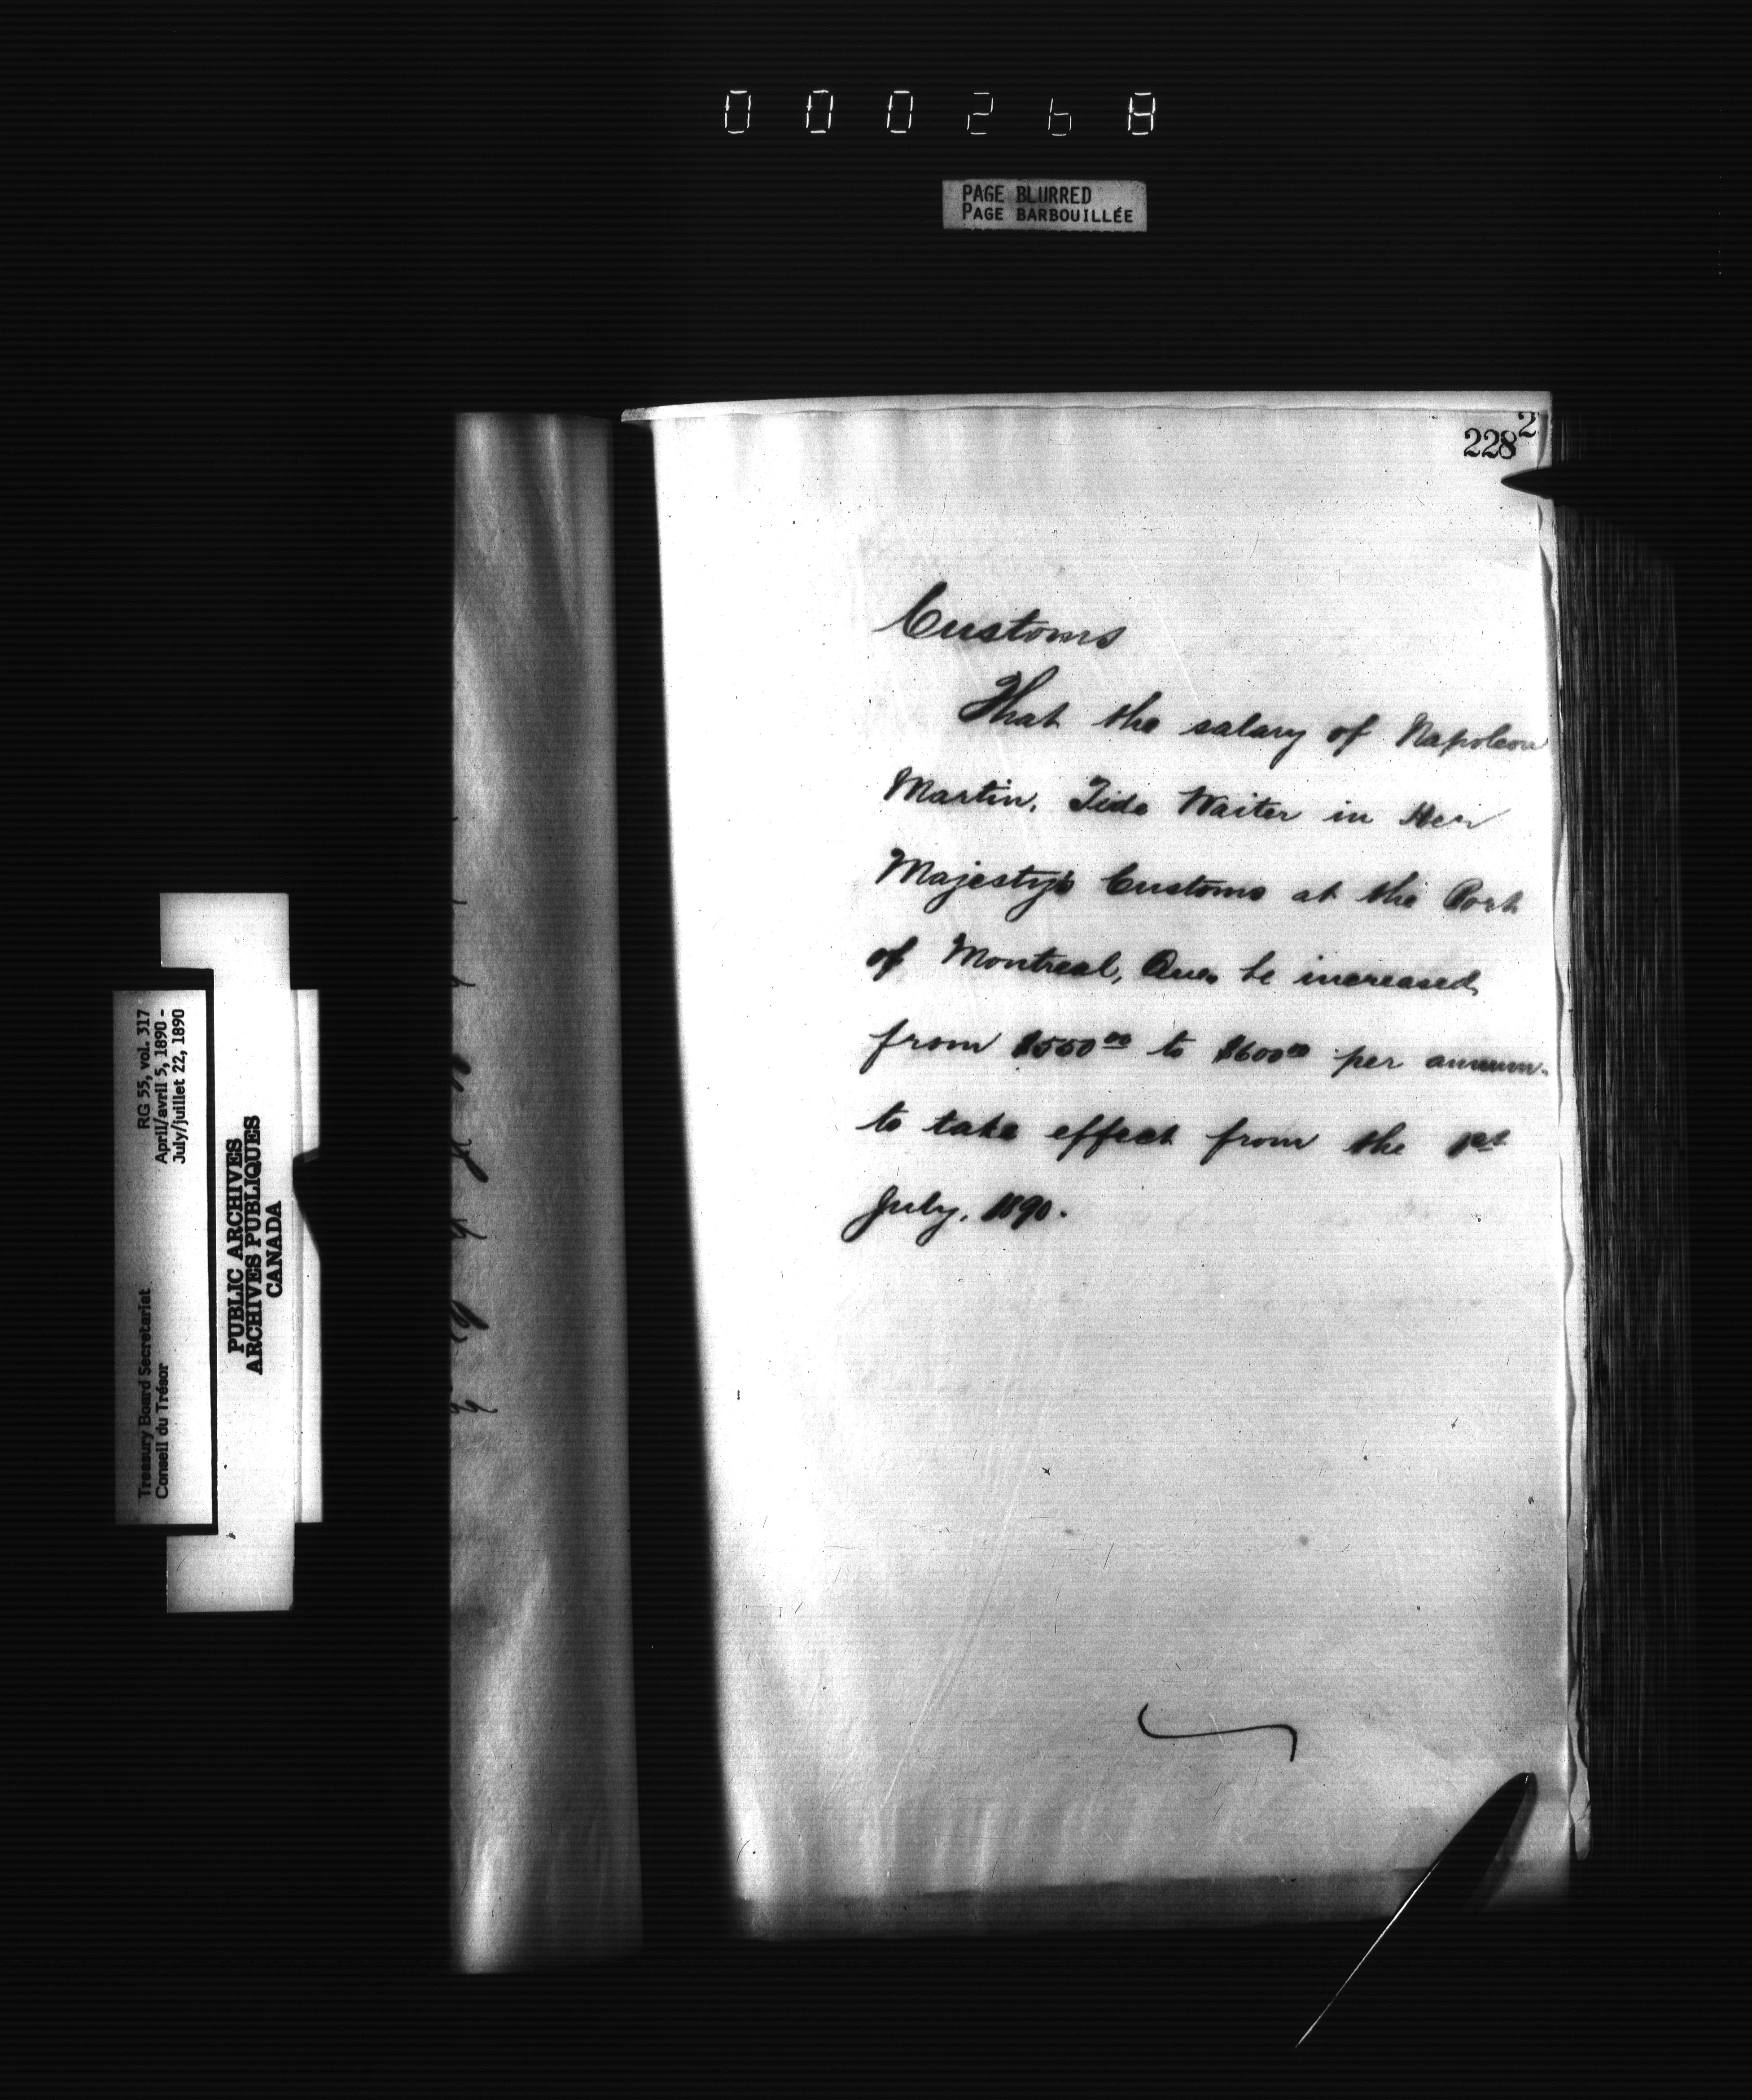 000268
PAGE BLURRED
PAGE BARBOUILLÉE
2
228
Customs
That the salary of Napoleon
Martin, Tide Waiter in Her
Majesty's Customs at the Port
of Montreal, Que. be increased
from $550.00 to $600.00 per annum.
to take effect from the 1st
July, 1890.
RG 55, vol. 317
April/avril 5, 1890 -
July/juillet 22, 1890
Treasury Board Secretariat
Conseil du Trésor
PUBLIC ARCHIVES
ARCHIVES PUBLIQUES
CANADA